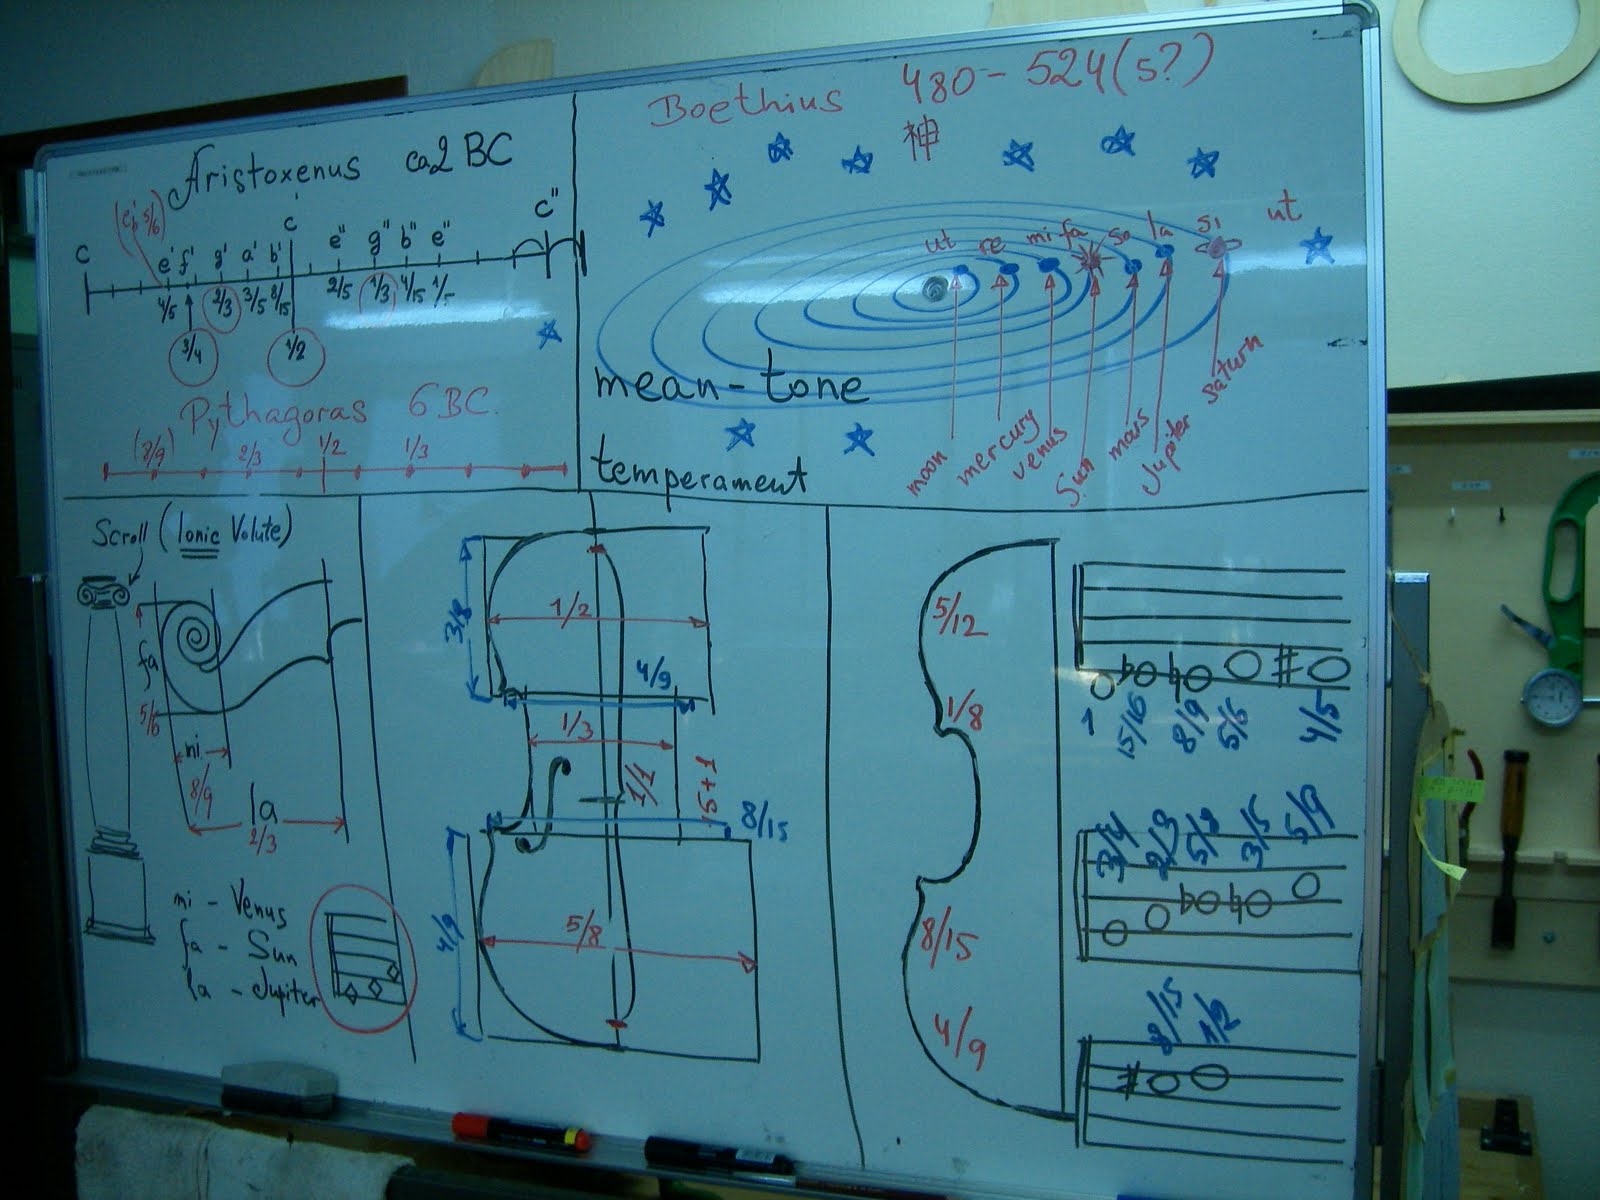 Aristoxenus ca2 BC
(e♭' 5/6)
c' c"
c e' f' g' a' b' e" g" b" e"
4/5 2/3 3/5 8/15 2/5 1/3 4/15
3/4 1/2
Pythagoras 6 BC.
(8/9) 2/3 1/2 1/3
Boethius 480 - 524(5?)
神
ut re mi fa so la si ut
mean-tone
temperament
moon mercury venus Sun mars Jupiter saturn
Scroll (Ionic Volute)
fa
5/6
mi
8/9
la
2/3
mi - Venus
fa - Sun
la - Jupiter
3/8
1/2
4/9
1/3
1/1
15+1
8/15
4/9
5/8
5/12
1/8
8/15
4/9
1 15/16 8/9 5/6 4/5
3/4 2/3 5/8 3/5 5/9
8/15 1/2